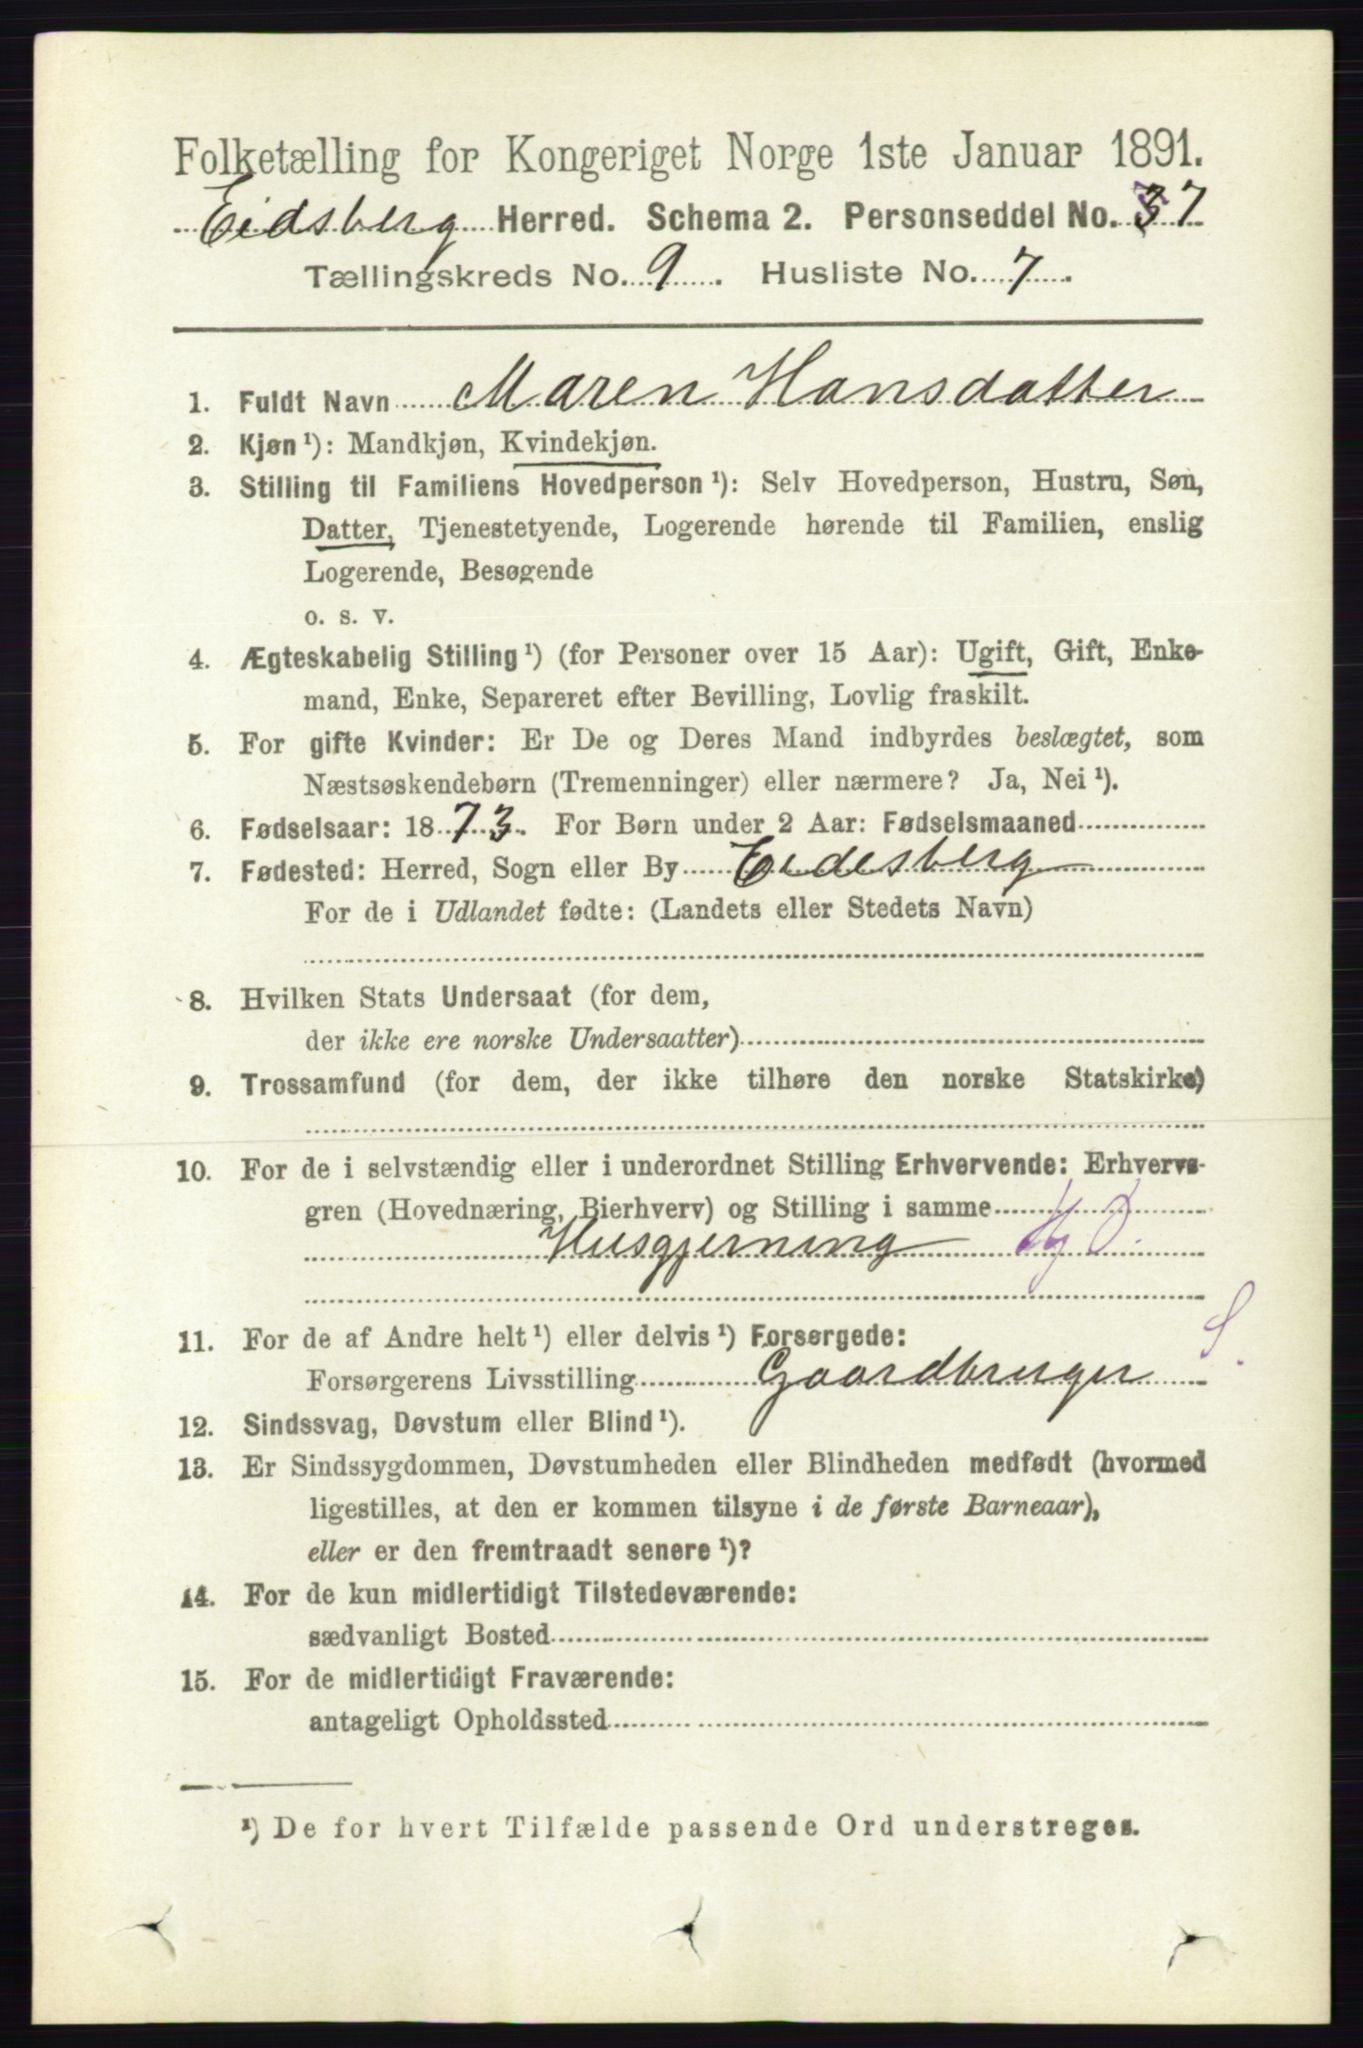 Folketælling for Kongeriget Norge 1ste Januar 1891.
Eidsberg Herred. Schema 2. Personseddel No. 37
Tællingskreds No. 9. Husliste No. 7.
1. Fuldt Navn Maren Hansdatter
2. Kjøn ¹): Mandkjøn, Kvindekjøn.
3. Stilling til Familiens Hovedperson ¹): Selv Hovedperson, Hustru, Søn,
Datter, Tjenestetyende, Logerende hørende til Familien, enslig
Logerende, Besøgende
o. s. v.
4. Ægteskabelig Stilling ¹) (for Personer over 15 Aar): Ugift, Gift, Enke-
mand, Enke, Separeret efter Bevilling, Lovlig fraskilt.
5. For gifte Kvinder: Er De og Deres Mand indbyrdes beslægtet, som
Næstsøskendebørn (Tremenninger) eller nærmere? Ja, Nei ¹).
6. Fødselsaar: 1873. For Børn under 2 Aar: Fødselsmaaned
7. Fødested: Herred, Sogn eller By Eidesberg
For de i Udlandet fødte: (Landets eller Stedets Navn)
8. Hvilken Stats Undersaat (for dem,
der ikke ere norske Undersaatter)
9. Trossamfund (for dem, der ikke tilhøre den norske Statskirke)
10. For de i selvstændig eller i underordnet Stilling Erhvervende: Erhvervs-
gren (Hovednæring, Bierhverv) og Stilling i samme
Husgjerning
11. For de af Andre helt ¹) eller delvis ¹) Forsørgede: S.
Forsørgerens Livsstilling Gaardbruger
12. Sindssvag, Døvstum eller Blind ¹).
13. Er Sindssygdommen, Døvstumheden eller Blindheden medfødt (hvormed
ligestilles, at den er kommen tilsyne i de første Barneaar),
eller er den fremtraadt senere ¹)?
14. For de kun midlertidigt Tilstedeværende:
sædvanligt Bosted
15. For de midlertidigt Fraværende:
antageligt Opholdssted
¹) De for hvert Tilfælde passende Ord understreges.